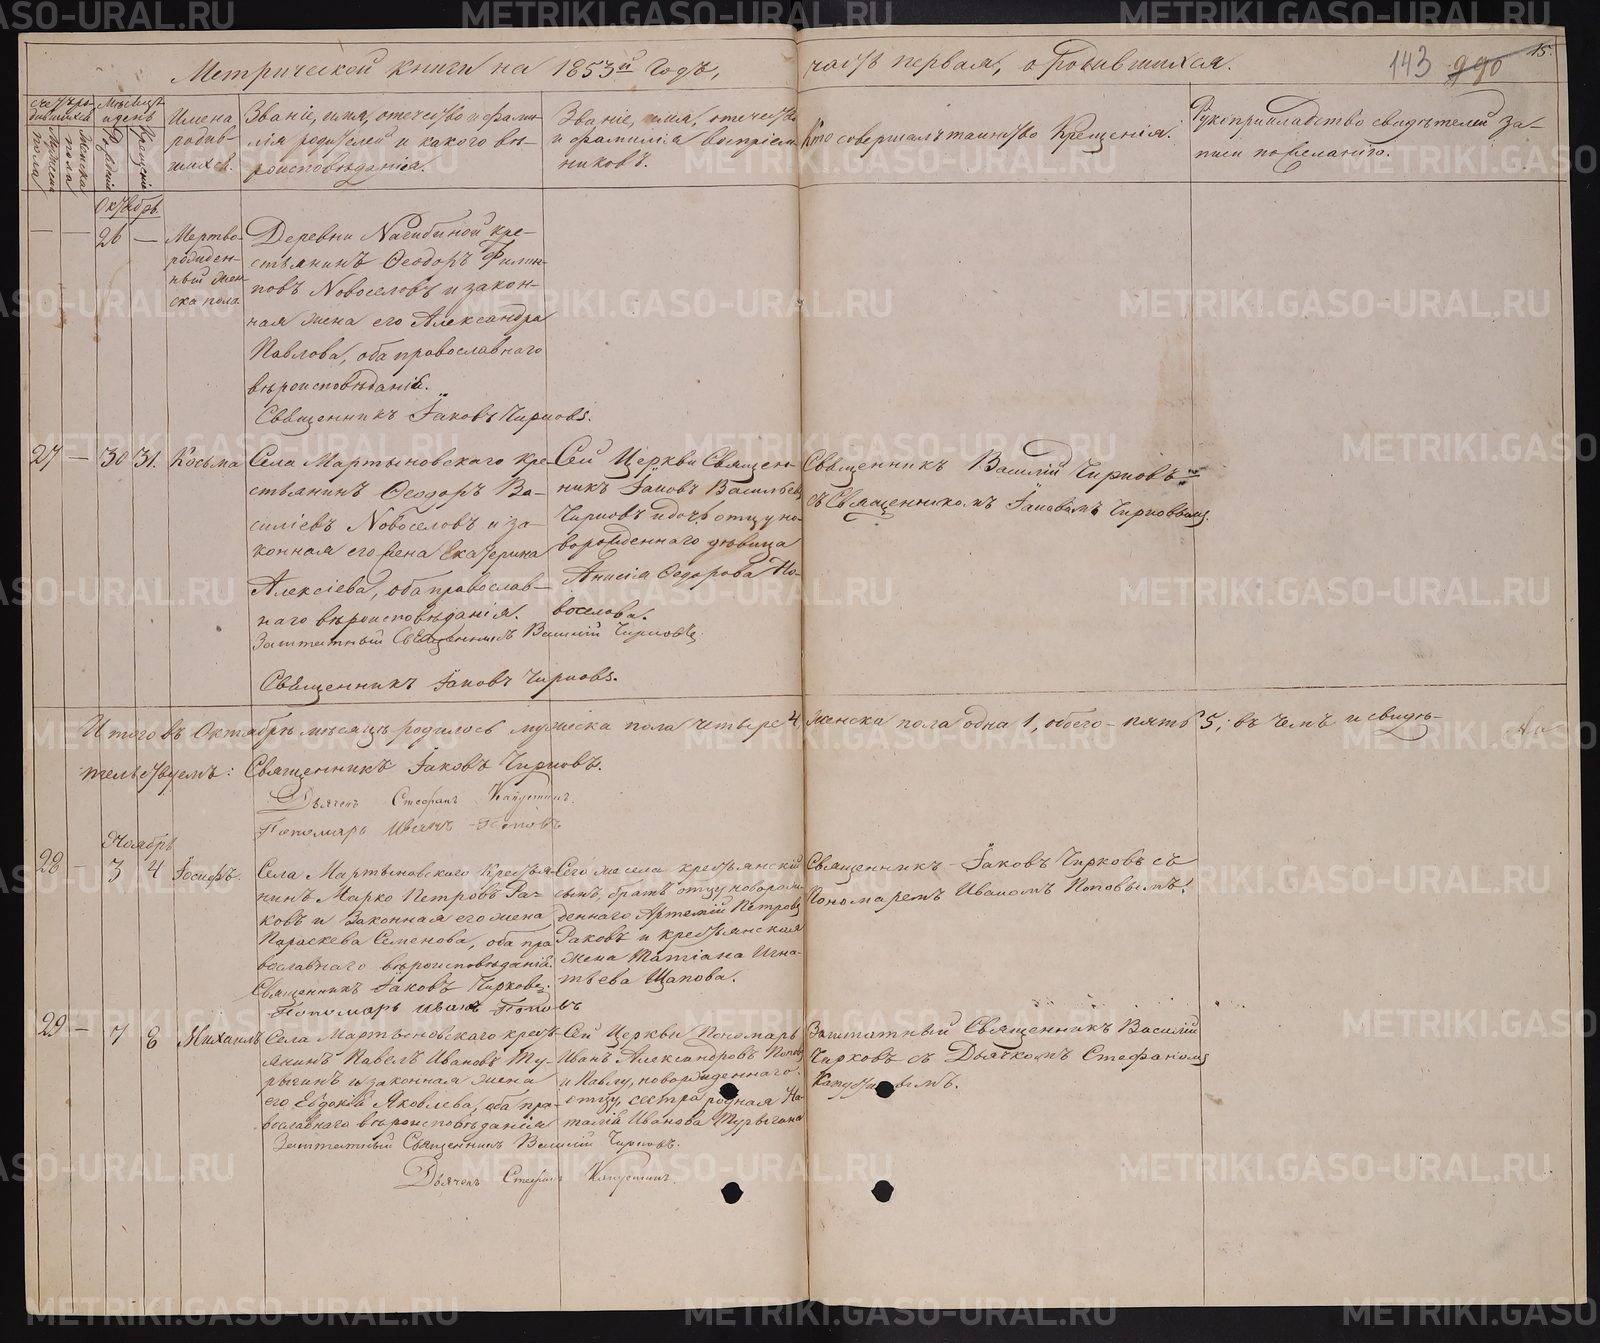 Метрической книги на 1853й годъ, часть первая, о родившихся.
143 990 15.
Счетъ ро-
дившихся
Мужеска пола
Женска пола
Мѣсяцъ
и день
Рожденія
Крещенія
Имена
родив-
шихся.
Званіе, имя, отечество и фами-
лія родителей и какого вѣ-
роисповѣданія.
Званіе, имя, отечество
и фамилія воспріем-
никовъ.
Кто совершалъ таинство Крещенія.
Рукоприкладство свидѣтелей за-
писи по желанію.
Октябрь
— — 26 —
Мертво-
рожден-
ный жен-
ска пола
Деревни Нагибиной кре-
стьянинъ Ѳеодоръ Филип-
повъ Новоселовъ и закон-
ная жена его Александра
Павлова, оба православнаго
вѣроисповѣданія.
Священникъ Іаковъ Чирковъ.
27 — 30 31.
Косьма
Села Мартыновскаго кре-
стьянинъ Ѳеодоръ Ва-
силіевъ Новоселовъ и за-
конная его жена Екатерина
Алексіева, оба православ-
наго вѣроисповѣданія.
Заштатный Священникъ Василій Чирковъ.
Священникъ Іаковъ Чирковъ.
Сей Церкви Священ-
никъ Іаковъ Васильевъ
Чирковъ и дочь отцу но-
ворожденнаго дѣвица
Анисія Ѳедорова Но-
воселова.
Священникъ Василій Чирковъ
съ Священникомъ Іаковомъ Чирковымъ.
Итого въ Октябрѣ мѣсяцѣ родилось мужеска пола четыре 4, женска пола одна 1, обего – пять 5; въ чемъ и свидѣ-
тельствуемъ: Священникъ Іаковъ Чирковъ.
Дьячекъ Стефанъ Капустинъ.
Пономарь Иванъ Поповъ
Ноябрь
28 — 3 4
Іосифъ.
Села Мартыновскаго крестья-
нинъ Марко Петровъ Ра-
ковъ и законная его жена
Параскева Семенова, оба пра-
вославнаго вѣроисповѣданія.
Священникъ Іаковъ Чирковъ.
Пономарь Иванъ Поповъ
Сего же села крестьянскій
сынъ, братъ отцу новорож-
деннаго Артемій Петровъ
Раковъ и крестьянская
жена Татіана Игна-
тьева Щапова.
Священникъ Іаковъ Чирковъ съ
Пономаремъ Иваномъ Поповымъ.
29 — 7 8
Михаилъ
Села Мартыновскаго кресть-
янинъ Павелъ Ивановъ Ту-
рыгинъ и законная жена
его Евдокія Яковлева, оба пра-
вославнаго вѣроисповѣданія
Заштатный Священникъ Василій Чирковъ.
Дьячекъ Стефанъ Капустинъ.
Сей Церкви Пономарь
Иванъ Александровъ Поповъ
и Павлу, новорожденнаго
отцу, сестра родная На-
талія Иванова Турыгина
Заштатный Священникъ Василій
Чирковъ съ Дьячкомъ Стефаномъ
Капустинымъ.